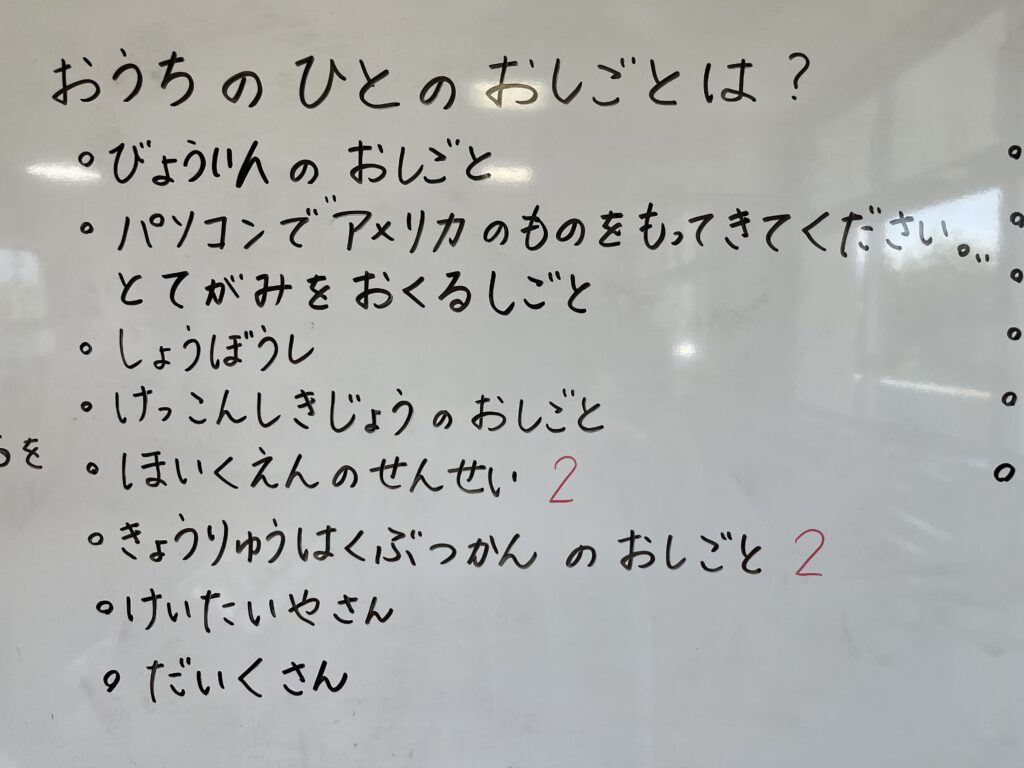 おうちのひとのおしごとは?
・びょういんのおしごと
・パソコンで"アメリカのものをもってきてください。"
とてがみをおくるしごと
・しょうぼうし
・けっこんしきじょうのおしごと
・ほいくえんのせんせい 2
・きょうりゅうはくぶつかんのおしごと 2
・けいたいやさん
・だいくさん